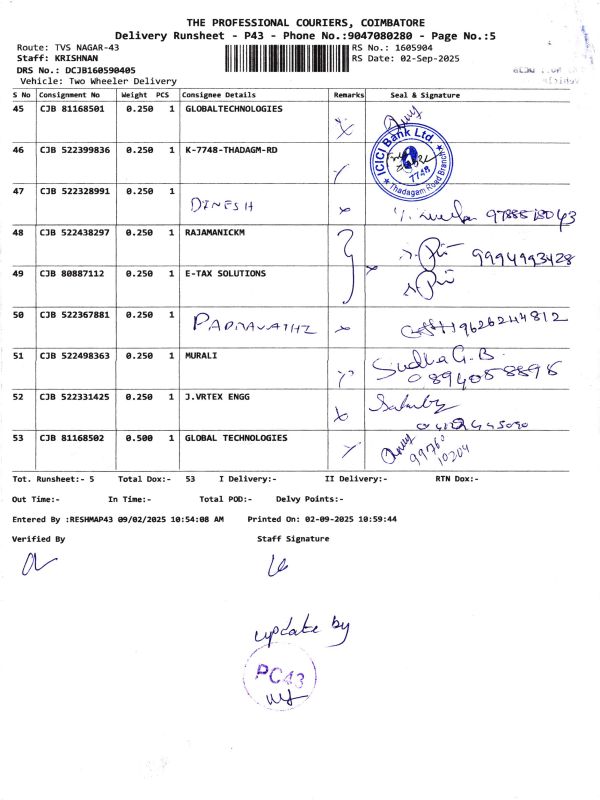 THE PROFESSIONAL COURIERS, COIMBATORE
Delivery Runsheet - P43 - Phone No.:9047080280 - Page No.:5
Route: TVS NAGAR-43 RS No.: 1605904
Staff: KRISHNAN RS Date: 02-Sep-2025
DRS No.: DCJB160590405
Vehicle: Two Wheeler Delivery
S No Consignment No Weight PCS Consignee Details Remarks Seal & Signature
45 CJB 81168501 0.250 1 GLOBALTECHNOLOGIES
ICICI Bank Ltd.
7748
★ Thadagam Road Branch ★
46 CJB 522399836 0.250 1 K-7748-THADAGM-RD
47 CJB 522328991 0.250 1
DINESH
48 CJB 522438297 0.250 1 RAJAMANICKM
9994993428
49 CJB 80887112 0.250 1 E-TAX SOLUTIONS
50 CJB 522367881 0.250 1
PADMAVATHI 9626244812
51 CJB 522498363 0.250 1 MURALI
Sudha G.B.
08940588895
52 CJB 522331425 0.250 1 J.VRTEX ENGG
53 CJB 81168502 0.500 1 GLOBAL TECHNOLOGIES
99760
10204
Tot. Runsheet:- 5 Total Dox:- 53 I Delivery:- II Delivery:- RTN Dox:-
Out Time:- In Time:- Total POD:- Delvy Points:-
Entered By :RESHMAP43 09/02/2025 10:54:08 AM Printed On: 02-09-2025 10:59:44
Verified By Staff Signature
update by
PC43